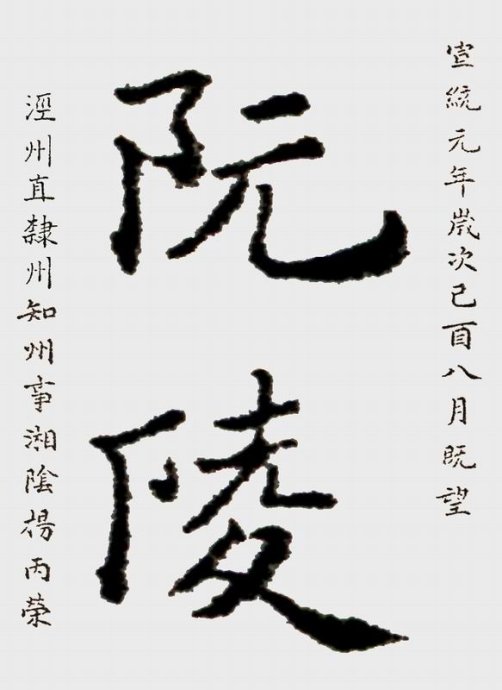 宣統元年歲次己酉八月既望
阮陵
涇州直隸州知州事湘陰楊丙榮